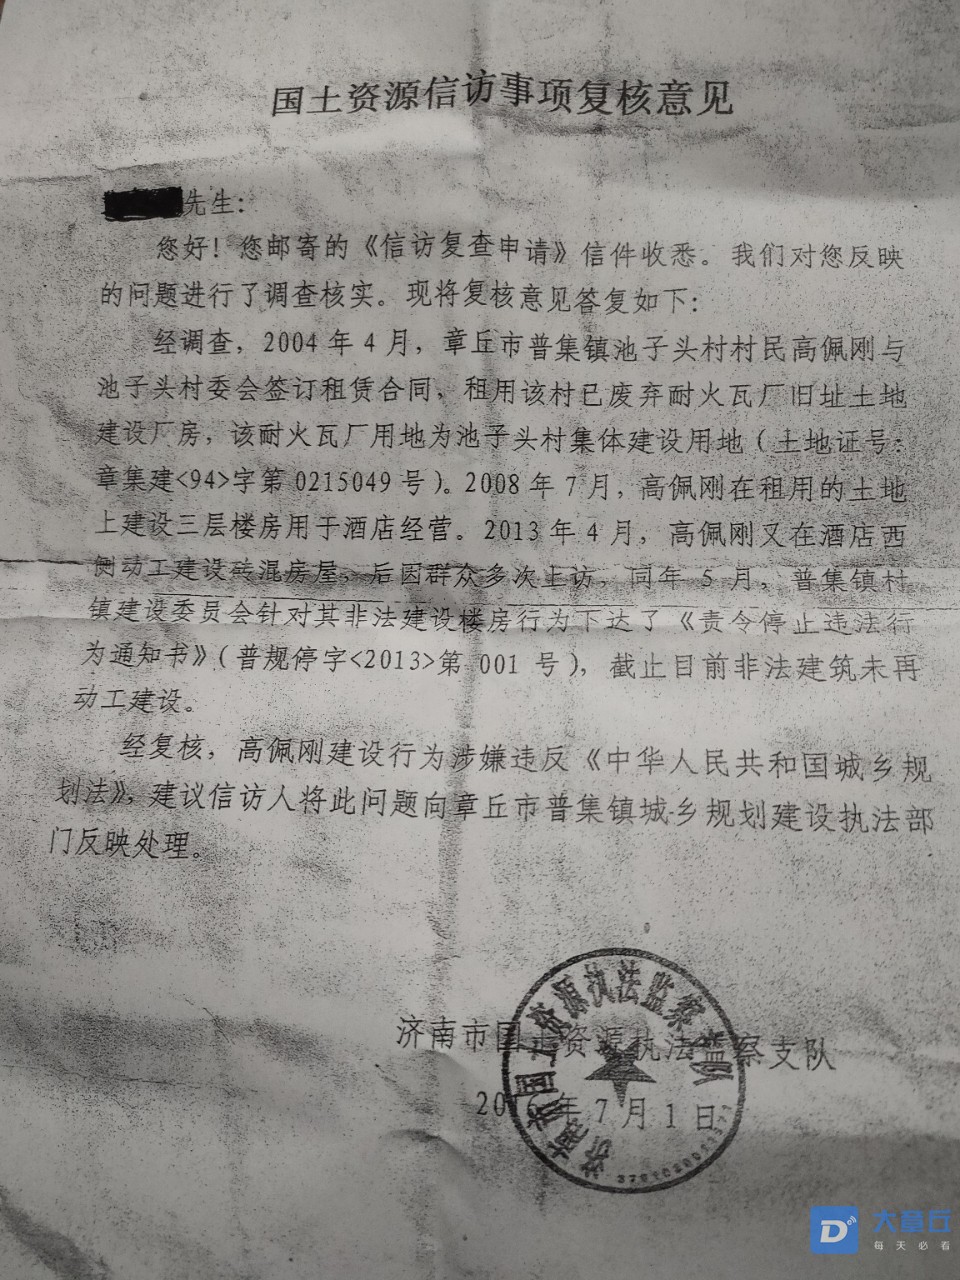 国土资源信访事项复核意见
先生：
您好！您邮寄的《信访复查申请》信件收悉。我们对您反映
的问题进行了调查核实。现将复核意见答复如下：
经调查，2004年4月，章丘市普集镇池子头村村民高佩刚与
池子头村委会签订租赁合同，租用该村已废弃耐火瓦厂旧址土地
建设厂房，该耐火瓦厂用地为池子头村集体建设用地（土地证号：
章集建<94>字第0215049号）。2008年7月，高佩刚在租用的土地
上建设三层楼房用于酒店经营。2013年4月，高佩刚又在酒店西
侧动工建设砖混房屋，后因群众多次上访，同年5月，普集镇村
镇建设委员会针对其非法建设楼房行为下达了《责令停止违法行
为通知书》（普规停字<2013>第001号），截止目前非法建筑未再
动工建设。
经复核，高佩刚建设行为涉嫌违反《中华人民共和国城乡规
划法》，建议信访人将此问题向章丘市普集镇城乡规划建设执法部
门反映处理。
济南市国土资源执法监察支队
年7月1日
济南市国土资源执法监察支队
大章丘
每天必看